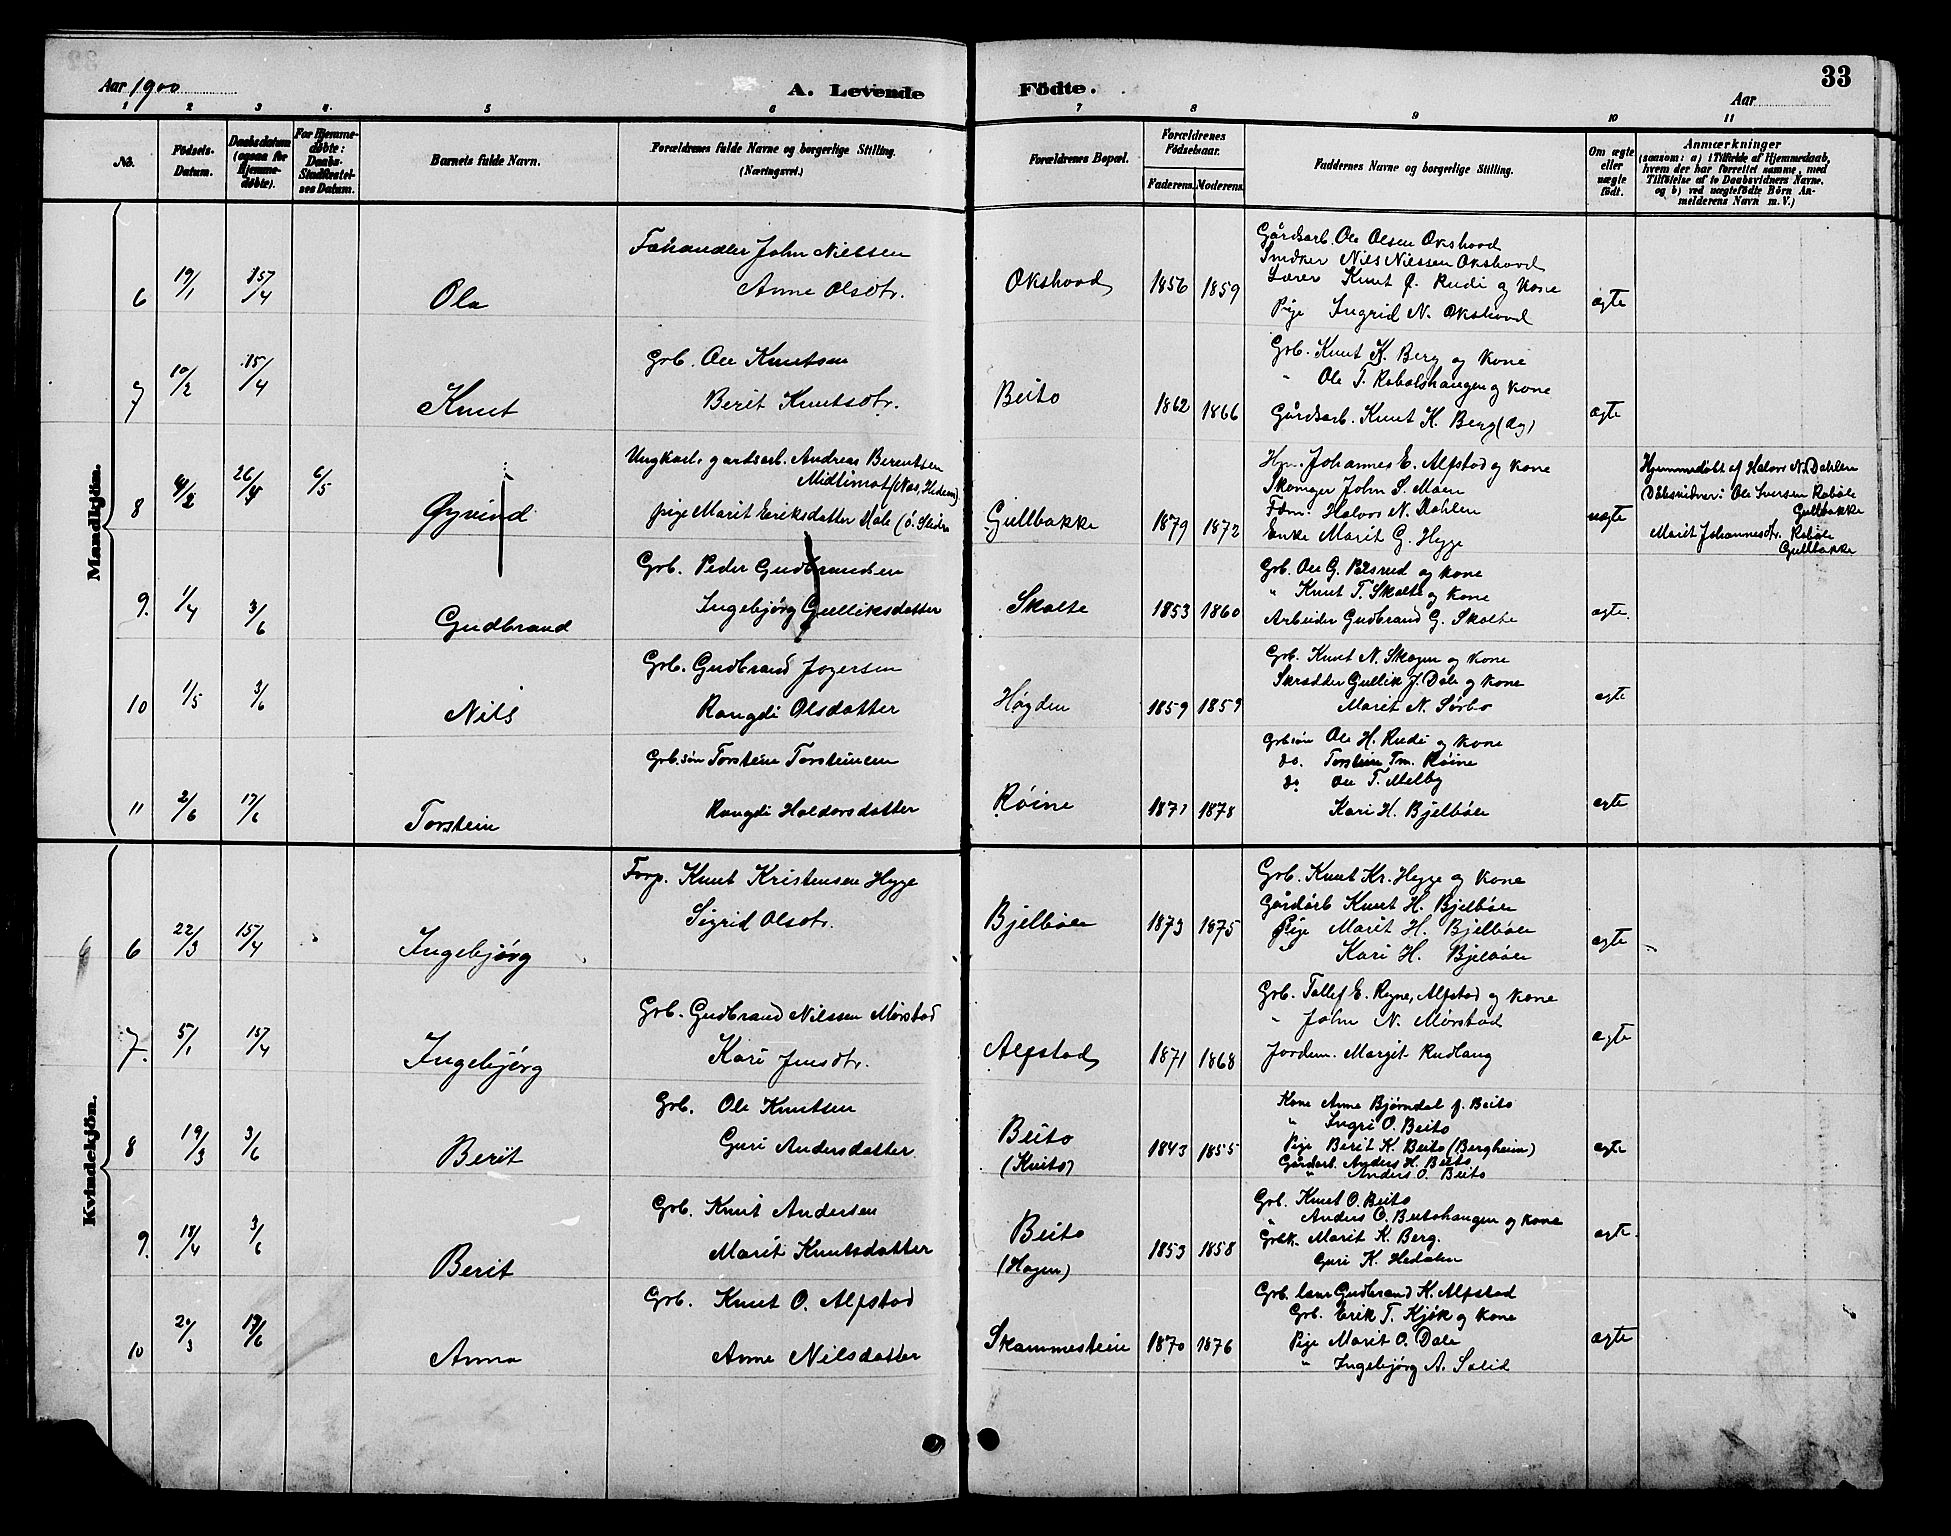 33
Aar 1900
A. Levende Födte.
Aar
1 2 3 4 5 6 7 8 9 10 11
No.
Födsels-Datum.
Daabsdatum (ogsaa for Hjemme-døbte).
For Hjemme-døbte: Daabs-Stadfæstel-ses Datum.
Barnets fulde Navn.
Forældrenes fulde Navne og borgerlige Stilling.
(Næringsvei.)
Forældrenes Bopæl.
Forældrenes Fødselsaar.
Faderens. Moderens.
Faddernes Navne og borgerlige Stilling.
Om ægte eller uægte födt.
Anmærkninger
(saasom: a) i Tilfælde af Hjemmedaab,
hvem der har forrettet samme, med
Tilföielse af to Daabsvidners Navne.
og b) ved uægtefödte Börn An-
melderens Navn m. V.)
Mandkjön.
6 19/1 15/4 Ola
Fæhandler John Nielssen
Anne Olsdtr.
Okshovd 1856 1859
Gårdsarb. Ole Olsen Okshovd
Snedker Nils Nilssen Okshovd
Lærer Knut O. Rudi og Kone
Pige Ingrid N. Okshovd
ægte
7 10/2 15/4 Knut
Grb. Ole Knutsen
Berit Knutsdtr.
Beito 1862 1866
Grb. Knut K. Berg og Kone
" Ole T. Robølshaugen og Kone
Gårdsarb. Knut K. Berg
ægte
8 4/2 26/4 6/5 Øyvind
Ungkarl. gardsarb. Andreas Berentsen
(Nes, Hedem)
pige Marit Eriksdatter Dale
Gullbakke 1879 1872
Johannes E. Alfstad og Kone
John S. Moen
Halvor N. Dahlen
Enke Marit G. Hygge
uægte
Hjemmedøbt af Halvor N. Dahlen
Dåbsvidner: Ole Iversen Robøle
Gullbakke
Marit Johannesdtr. Robøle
Gullbakke
9. 1/4 3/6 Gudbrand
Grb. Peder Gudbrandsen
Ingebjørg Gulliksdatter
Skolte 1853 1860
Grb. Ole G. og Kone
" Knut T. Skolte og Kone
Arbeider Gudbrand G. Skolte
ægte.
10 1/5 3/6 Nils
Grb. Gudbrand Jogersen
Rangdi Olsdatter
Høgden 1859 1859
Grb. Knut N. Skogen og Kone
Skrædder Gullik J. Dale og Kone
Marit N. Sørbo
ægte
11 2/6 17/6 Torstein
Grb.søn Torstein Torsteinsen
Rangdi Haldorsdatter
Røine 1871 1878
Grbsøn Ole H. Rudi og Kone
do. Torstein Tm. Røine
do Ole T. Melby
Kari H. Bjelbøle
ægte
Kvindekjön.
6 22/3 15/4 Ingebjørg
Forp. Knut Kristensen Hygge
Sigrid Olsdtr.
Bjelbøle 1873 1875
Grb. Knut Kr. Hygge og Kone
Gårdarb Knut H. Bjelbøle
Pige Marit H. Bjelbøle
Kari H. Bjelbøle
ægte
7. 5/1 15/4 Ingebjørg
Grb. Gudbrand Nilssen Mørstad
Kari Jensdtr.
Alfstad 1871 1868
Grb. Tollef E. Rogne, Alfstad og Kone
" John N. Mørstad
Jordem. Margit Rudlang
ægte
8 19/3 3/6 Berit
Grb. Ole Knutsen
Guri Andersdatter
Beito
(Knito) 1843 1855
Kone Anne Bjørndal f. Beito
" Ingri O. Beito
Pige Berit K. Beito (Bergheim)
Gårdarb. Anders H. Beito
" Anders O. Beito
ægte
9. 18/4 3/6 Berit
Grb. Knut Andersen
Marit Knutsdatter
Beito
(Hagen) 1853 1858
Grb. Knut O. Beito
" Anders O. Beitohaugen og Kone
Grbk. Marit K. Berg.
Guri K. Hedalen
ægte.
10 20/3 17/6 Anna
Grb. Knut O. Alfstad
Anne Nilsdatter
Skammestein 1870 1876
Grb. Gudbrand K. Alfstad
Grb. Erik T. Kjøk og Kone
Pige Marit O. Dale
" Ingebjørg A. Solid
ægte